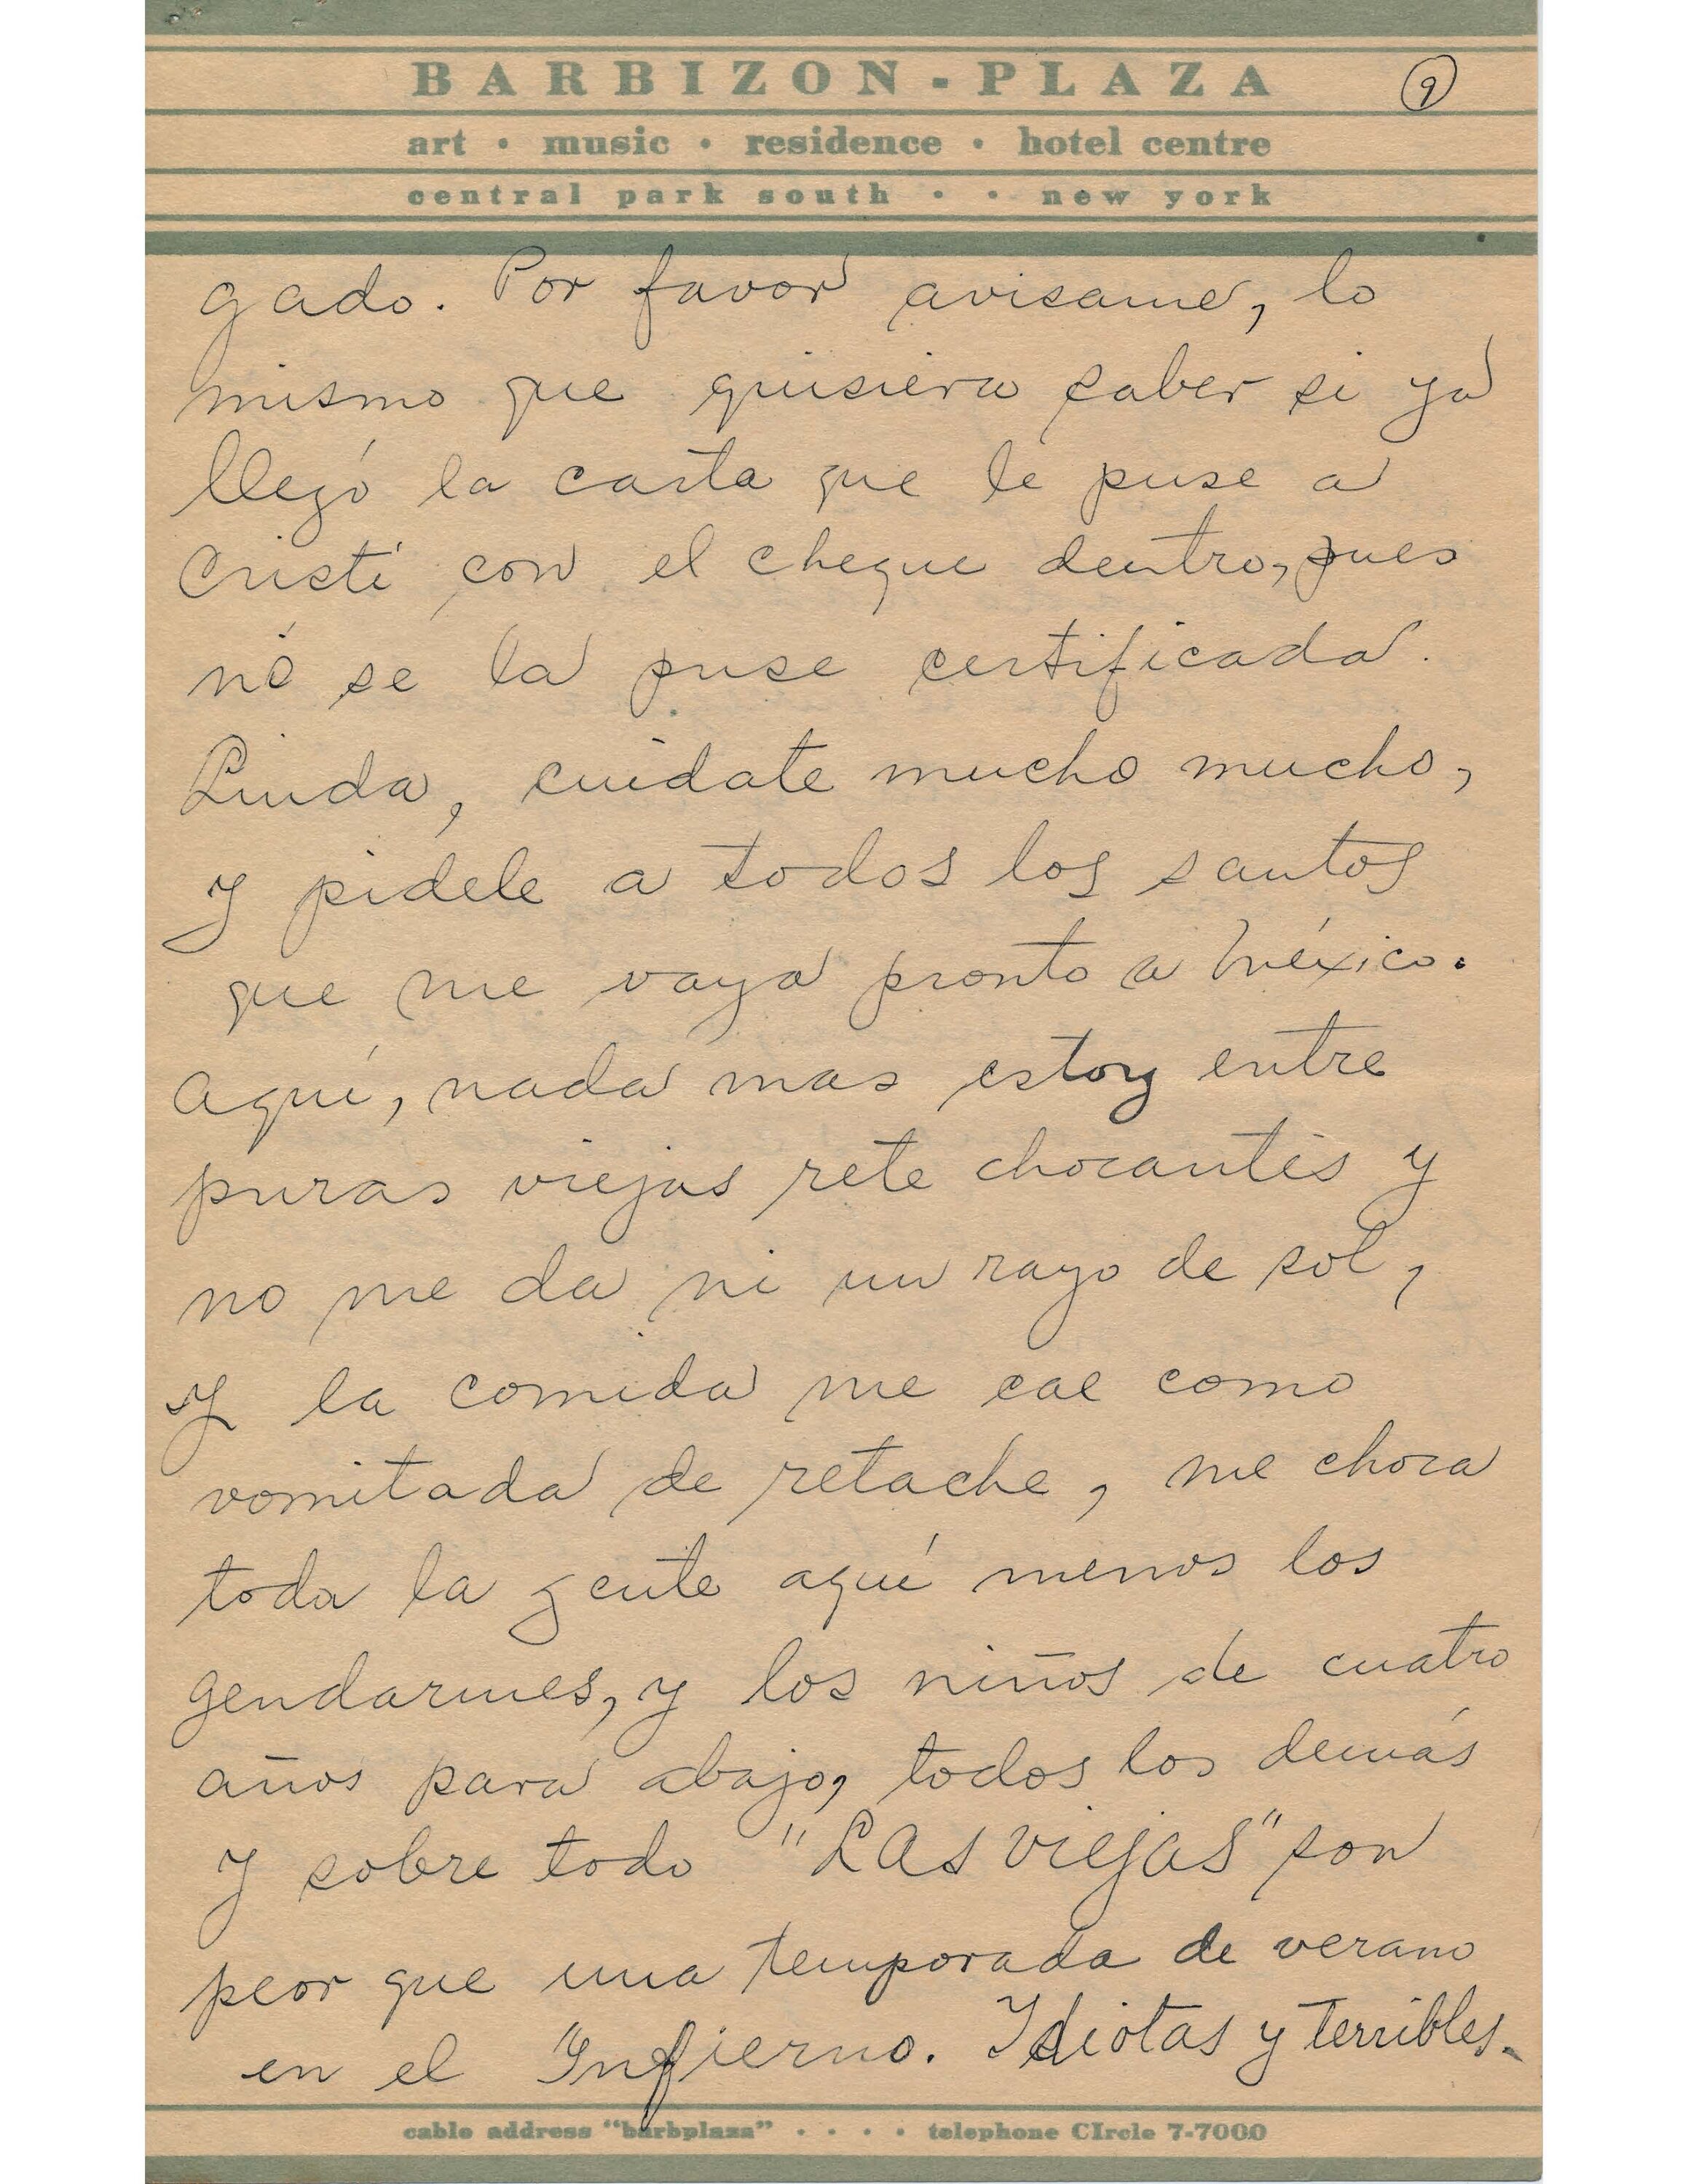 BARBIZON-PLAZA
9
art • music • residence • hotel centre
central park south • • new york
gado. Por favor avisame, lo
mismo que quisiera saber si ya
llegó la carta que le puse a
Cristi con el cheque dentro, pues
nó se la puse certificada.
Linda, cuidate mucho mucho,
y pidele a todos los santos
que me vaya pronto a México.
Aquí, nada mas estoy entre
puras viejas rete chocantes y
no me da ni un rayo de sol,
y la comida me cae como
vomitada de retache, me choca
toda la gente aquí menos los
gendarmes, y los niños de cuatro
años para abajo, todos los demás
y sobre todo "LAS viejas" son
peor que una temporada de verano
en el Infierno. Idiotas y terribles.
cable address "barbplaza" • • • • telephone CIrcle 7-7000